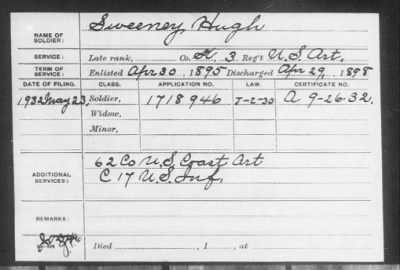 NAME OF SOLDIER: Sweeney, Hugh
SERVICE: Late rank, Co. K, 3 Reg't U.S. Art.
TERM OF SERVICE: Enlisted Apr 30, 1895 Discharged Apr 29, 1898
DATE OF FILING. CLASS. APPLICATION NO. LAW. CERTIFICATE NO.
1932 May 23, Soldier, 1718946 J-2-30 A 9-26-32.
Widow,
Minor,
ADDITIONAL SERVICES: 62 Co U.S. Coast Art
C 17 U.S. Inf.
REMARKS:
Died , 1 , at